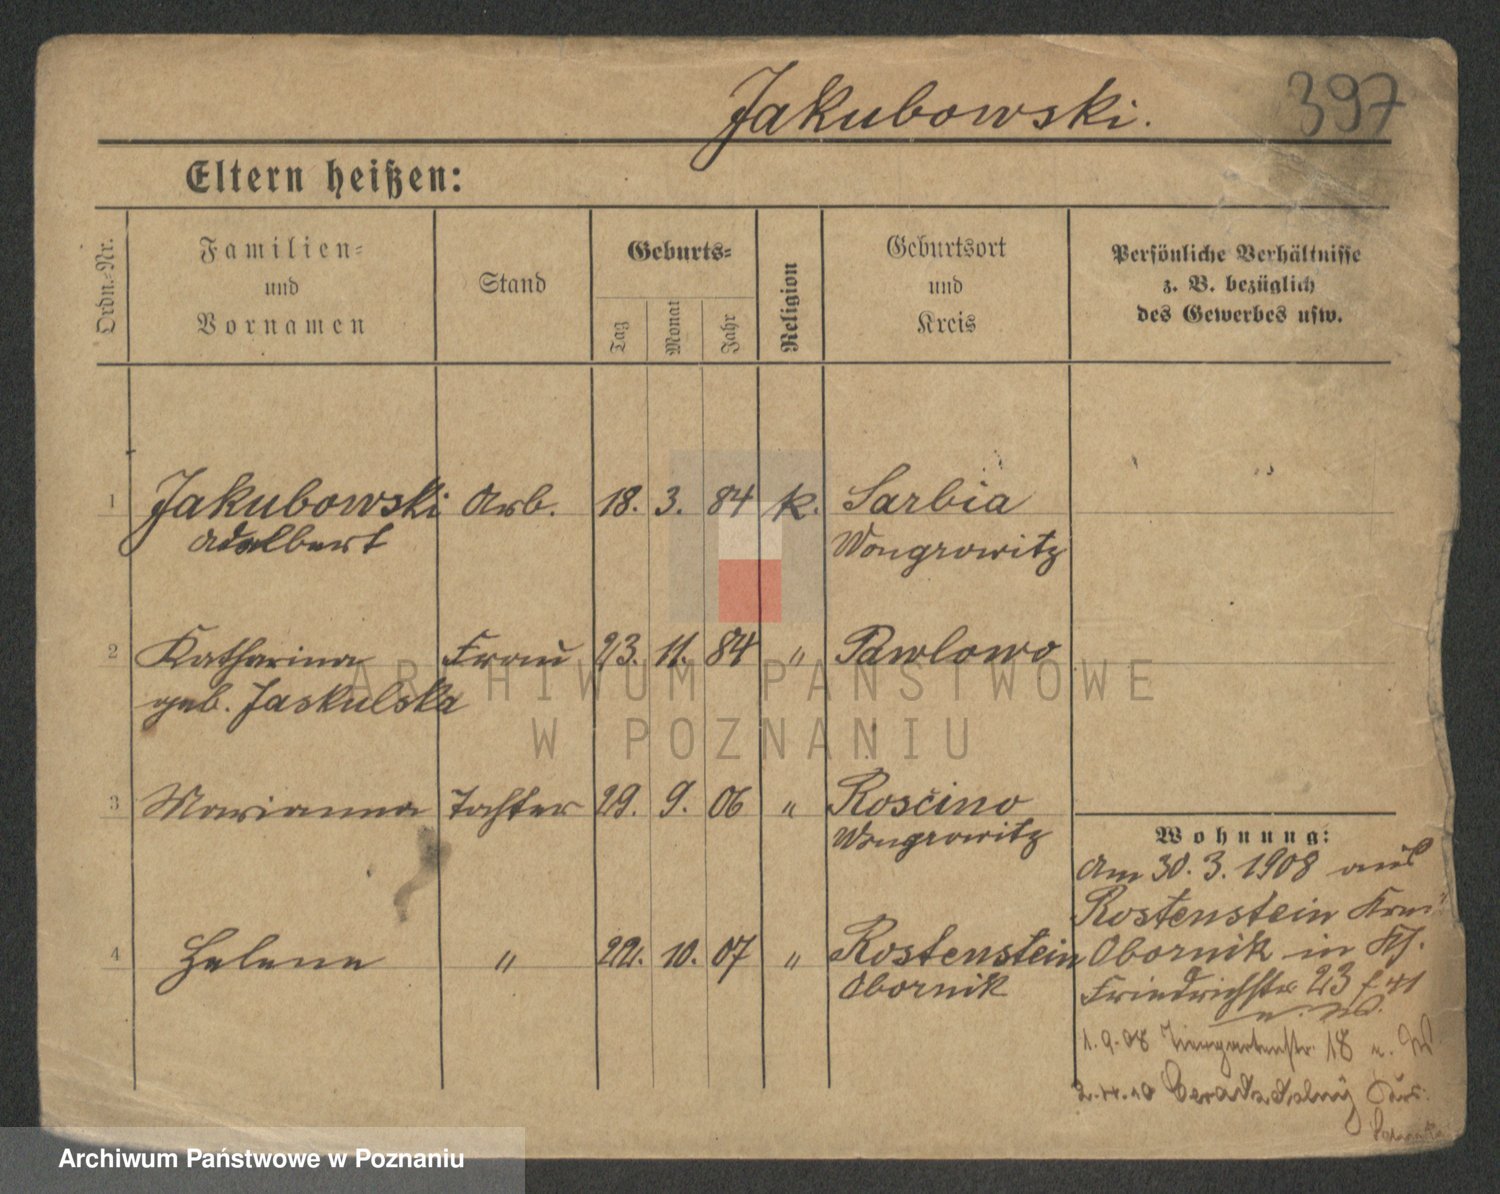 Jakubowski.
397
Eltern heißen:
Ordn.-Nr.
Familien-
und
Vornamen
Stand
Geburts-
Tag
Monat
Jahr
Religion
Geburtsort
und
Kreis
Persönliche Verhältnisse
z. B. bezüglich
des Gewerbes usw.
1 Jakubowski Arb. 18. 3. 84 k. Sarbia
Adalbert Wongrowitz
2 Katharina Frau 23. 11. 84 " Pawlowo
geb. Jaskulska
3 Marianna Tochter 29. 9. 06 " Rosćino
Wongrowitz
4 Helene " 22. 10. 07 " Rostenstein
Obornik
Wohnung:
Am 30. 3. 1908 aus
Rostenstein Kreis
Obornik in
Friedrichstr. 23
1.9.08 Tiergartenstr. 18
ARCHIWUM PAŃSTWOWE
W POZNANIU
Archiwum Państwowe w Poznaniu